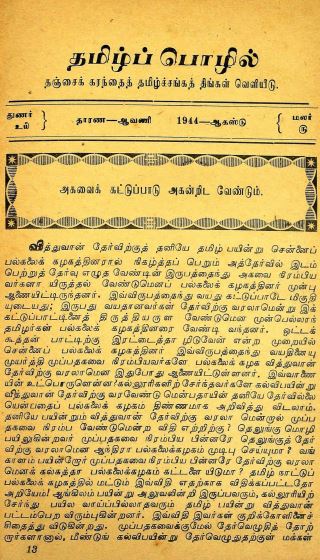 தமிழ்ப் பொழில்
தஞ்சைக் கரந்தைத் தமிழ்ச்சங்கத் திங்கள் வெளியீடு.
துணர் } தாரண—ஆவணி 1944—ஆகஸ்டு { மலர்
அகவைக் கட்டுப்பாடு அகன்றிட வேண்டும்.
வித்துவான் தேர்விற்குத் தனியே தமிழ் பயின்று சென்னைப்
பல்கலைக் கழகத்தினரால் நிகழ்த்தப் பெறும் அத்தேர்வில் இடம்
பெற்றுத் தேர்வு எழுத வேண்டின் இருபத்தைந்து அகவை நிரம்பிய
வர்களா யிருத்தல் வேண்டுமெனப் பல்கலைக் கழகத்தினர் முன்பு
ஆணையிட்டிருந்தனர். இவ்விருபத்தைந்து வயது கட்டுப்பாடே மிகுதி
யுடையது; இருபது வயதானவர்கள் தேர்வு வரலாமென்று இக்
கட்டுப்பாட்டினைத் திருத்தியருள வேண்டுமென முன்பெல்லாம்
தமிழர்கள் பல்கலைக் கழகத்தினரை வேண்டி வந்தனர். ஒட்டக்
கூத்தன் பாட்டிற்கு இரட்டைத்தா ழிடுவேன் என்ற முறையில்
சென்னைப் பல்கலைக் கழகத்தினர் இவ்விருபத்தைந்து வயதினையு
முயர்த்தி முப்பதகவை நிரம்பியவர்களே பல்கலைக் கழக வித்துவான்
தேர்விற்கு வரலாமென இதுபோது ஆணையிட்டுள்ளனர். இவ்வாணை
யின் உட்பொருளென்ன? கல்லூரிகளிற் சேர்ந்தவர்களே கல்வி பயின்று
வித்துவான் தேர்விற்கு வரவேண்டு மென்பதாயின் தனியே தேர்வில்லை
யென்பதைப் பல்கலைக் கழகம் திண்ணமாக அறிவித்து விடலாம்.
தனியே பயின்றும் வித்துவான் தேர்விற்கு வரலா மென்றால் முப்ப
தகவை நிரம்ப வேண்டுமென்ற விதி எற்றிற்கு? தெலுங்கு மொழி
பயிலுகின்றவர் முப்பதகவை நிரம்பிய பின்னரே தெலுங்குத் தேர்
விற்கு வரலாமென ஆந்திரா பல்கலைக்கழகம் முடிபு செய்யுமா? வங்
காளம் பயின்றோர் முப்பதகவை நிரம்பிய பின்னரே தேர்விற்கு வரலா
மெனக் கல்கத்தாப் பல்கலைக்கழகம் கட்டளை யிடுமா? தமிழ் நாட்டுப்
பல்கலைக் கழகத்தில் மட்டும் இவ்விதி எதற்காக விதிக்கப்பட்டதோ
அறியேம்! ஆங்கிலம் பயின்று அலுவலின் றிருப்பவரும், கல்லூரியிற்
சேர்ந்து பயில வாய்ப்பில்லாதவரும் தமிழ் பயின்று வித்துவான்
பட்டம்பெற விரும்புகின்றனர். இவ்விதி இவர்கள் குறிக்கோளினைச்
சிதைத்து விடுகின்றது. முப்பதகவைக்குமேல் தேர்வெழுதித் தோற்
றார்களானால், மீண்டும் கல்விபயின்று தேர்வெழுதுதற்குள் மக்கள்
13